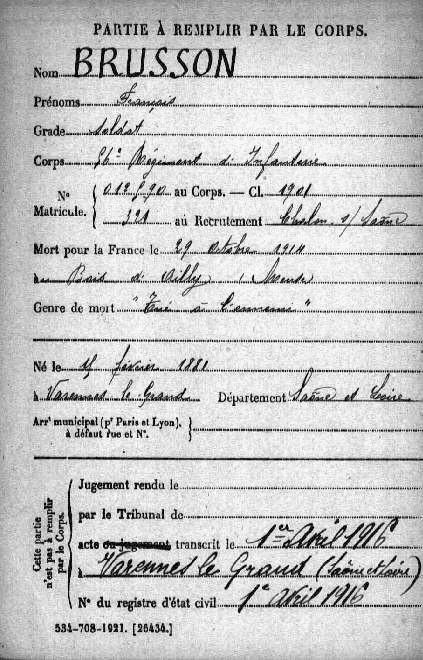 PARTIE À REMPLIR PAR LE CORPS.
Nom BRUSSON
Prénoms François
Grade Soldat
Corps 56e Régiment d'Infanterie
No Matricule. { 012590 au Corps. — Cl. 1901
321 au Recrutement Chalon s/ Saône
Mort pour la France le 29 Octobre 1914
à Bois d'Ailly, Meuse
Genre de mort "Tué à l'ennemi"
Né le février 1881
à Varennes le Grand Département Saône et Loire
Arrt municipal (pr Paris et Lyon), à défaut rue et No. }
Cette partie n'est pas à remplir par le Corps. {
Jugement rendu le
par le Tribunal de
acte ou jugement transcrit le 1er Avril 1916
à Varennes le Grand (Saône et Loire)
No du registre d'état civil 1er Avril 1916
534-708-1921. [26434.]